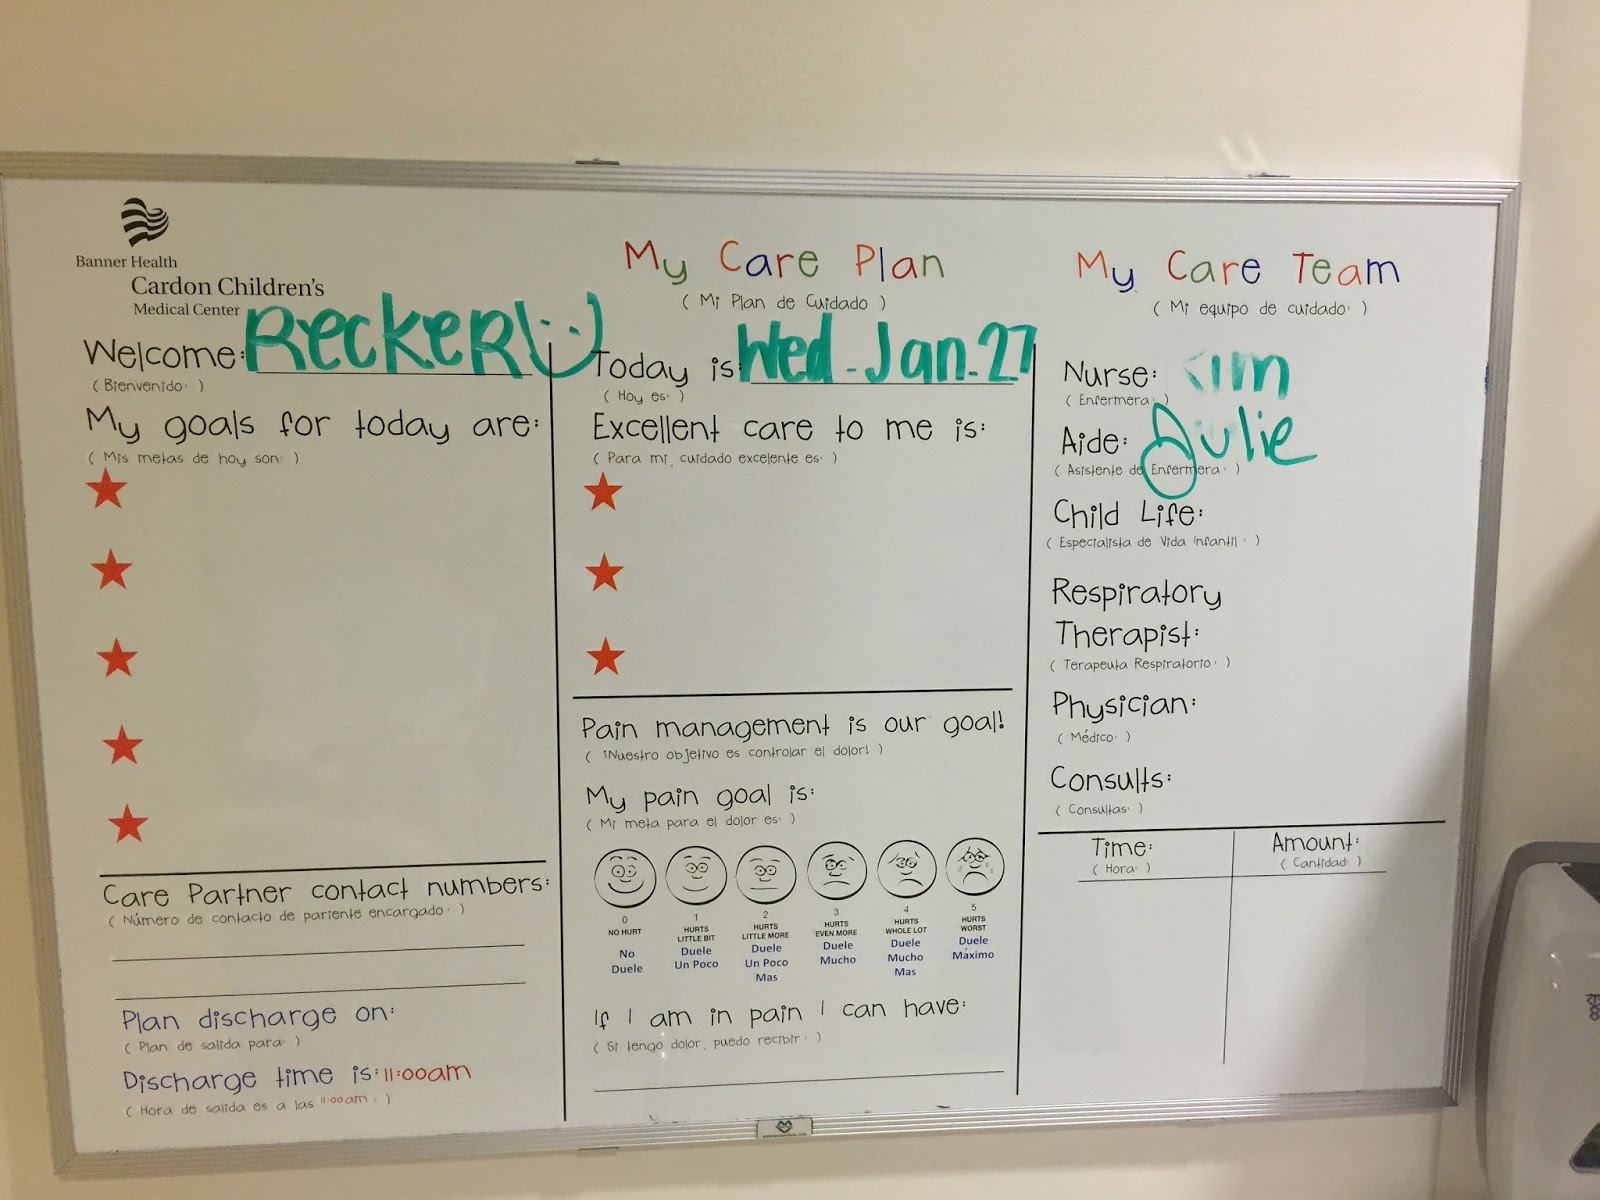 Banner Health
Cardon Children's
Medical Center
Welcome: Recker
( Bienvenido: )
My goals for today are:
( Mis metas de hoy son: )
Care Partner contact numbers:
( Número de contacto de pariente encargado: )
Plan discharge on:
( Plan de salida para: )
Discharge time is: 11:00am
( Hora de salida es a las 11:00am. )
My Care Plan
( Mi Plan de Cuidado )
Today is: Wed. Jan. 27
( Hoy es: )
Excellent care to me is:
( Para mi, cuidado excelente es: )
Pain management is our goal!
( ¡Nuestro objetivo es controlar el dolor! )
My pain goal is:
( Mi meta para el dolor es: )
0 1 2 3 4 5
NO HURT HURTS LITTLE BIT HURTS LITTLE MORE HURTS EVEN MORE HURTS WHOLE LOT HURTS WORST
No Duele Duele Un Poco Duele Un Poco Mas Duele Mucho Duele Mucho Mas Duele Máximo
If I am in pain I can have:
( Si tengo dolor, puedo recibir: )
My Care Team
( Mi equipo de cuidado: )
Nurse: Kim
( Enfermera: )
Aide: Julie
( Asistente de Enfermera: )
Child Life:
( Especialista de Vida Infantil: )
Respiratory
Therapist:
( Terapeuta Respiratorio: )
Physician:
( Médico: )
Consults:
( Consultas: )
Time: Amount:
( Hora: ) ( Cantidad: )